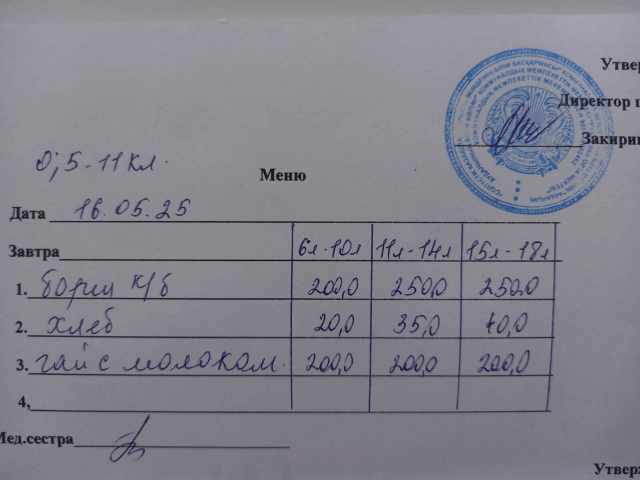 Утвер
Директор ш
Закири
0; 5-11 кл.
Меню
Дата 16.05.25
Завтра 6л-10л 11л-14л 15л-18л
1. борщ к/б 200,0 250,0 250,0
2. хлеб 20,0 35,0 40,0
3. чай с молоком. 200,0 200,0 200,0
4,
Мед.сестра
Утверж